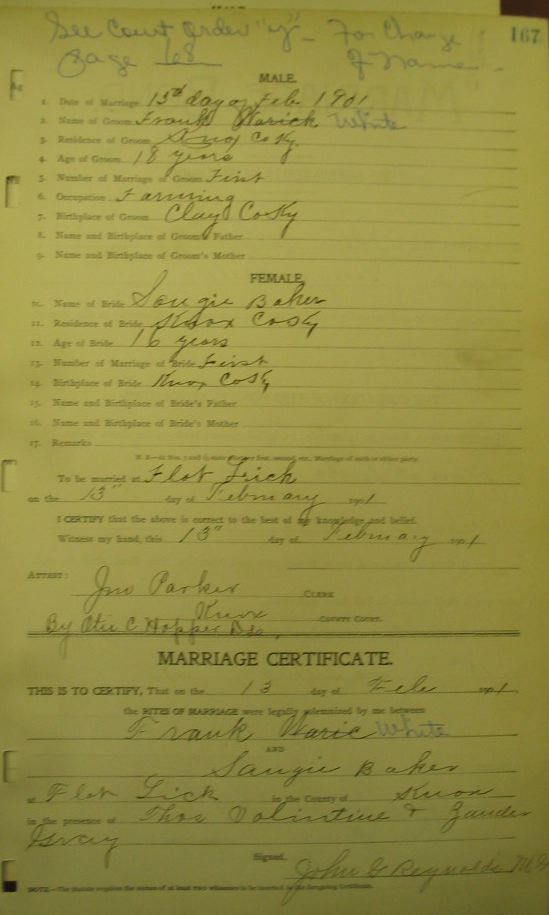 See Court Order "y" - For Change
Page 68 of Name -
167
MALE.
1. Date of Marriage 13th day of Feb 1901
2. Name of Groom Frank Warick White
3. Residence of Groom Knox Co Ky.
4. Age of Groom 18 years
5. Number of Marriage of Groom First
6. Occupation Farming
7. Birthplace of Groom Clay Co Ky
8. Name and Birthplace of Groom's Father
9. Name and Birthplace of Groom's Mother
FEMALE.
10. Name of Bride Sangie Baker
11. Residence of Bride Knox Co Ky
12. Age of Bride 16 years
13. Number of Marriage of Bride First
14. Birthplace of Bride Knox Co Ky
15. Name and Birthplace of Bride's Father
16. Name and Birthplace of Bride's Mother
17. Remarks
N. B.—At Nos. 5 and 13 state whether first, second, etc., Marriage of each or either party.
To be married at Flat Lick
on the 13" day of February 1901
I CERTIFY that the above is correct to the best of my knowledge and belief.
Witness my hand, this 13" day of February 1901
ATTEST: Jno Parker CLERK
Knox COUNTY COURT.
By Otis C Hopper D.C.
MARRIAGE CERTIFICATE.
THIS IS TO CERTIFY, That on the 13 day of Feb 1901.
the RITES OF MARRIAGE were legally solemnized by me between
Frank Waric White
AND
Sangie Baker
at Flat Lick in the County of Knox
in the presence of Thos Valintine &
Signed, John G Reynolds M.G
NOTE.—The Statute requires the names of at least TWO witnesses to be inserted in the foregoing Certificate.